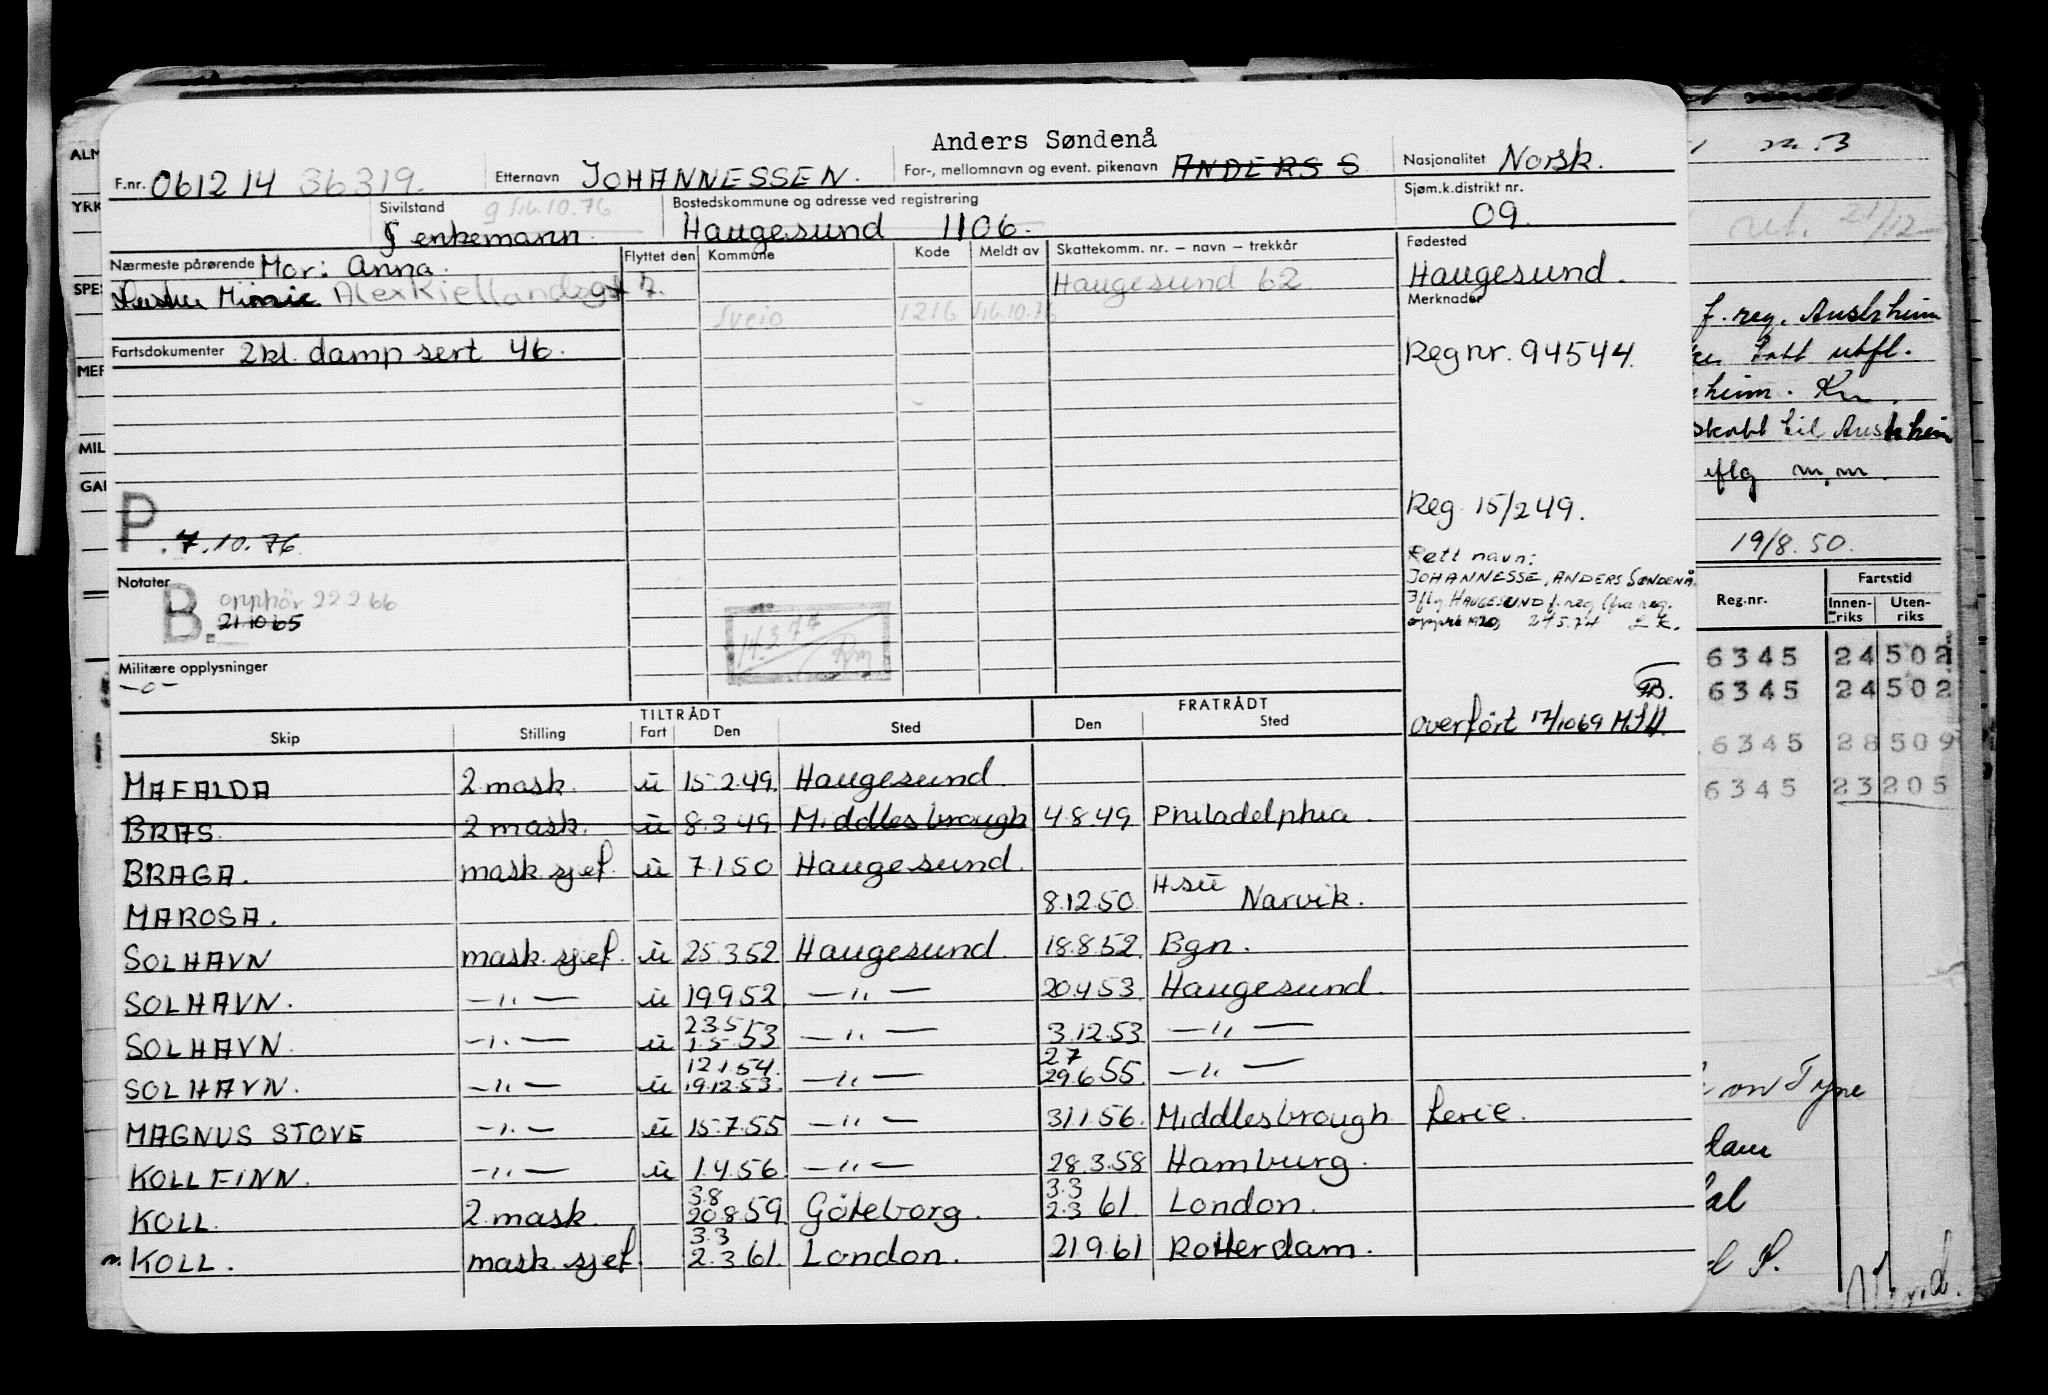 Anders Søndenå
F.nr. 061214 36319. Etternavn JOHANNESSEN. For-, mellomnavn og event. pikenavn ANDERS S Nasjonalitet Norsk.
Sivilstand g 5/6.10.76 Bostedskommune og adresse ved registrering Sjøm.k.distrikt nr.
enkemann. Haugesund 1106. 09.
Nærmeste pårørende Mor: Anna. Flyttet den Kommune Kode Meldt av Skattekomm. nr. – navn – trekkår Fødested
Minnie Alex Kiellandsgt 7. Haugesund 62 Haugesund.
Sveio 1216 5/6.10.76 Merknader
Fartsdokumenter 2 kl. damp sert 46. Reg nr. 94544.
P. 7.10.76. Reg. 15/2 49.
Rett navn:
JOHANNESSE, ANDERS SØNDENÅ.
Notater HAUGESUND f.reg (fra reg.
B. opphör 22 2 66 1920, 24 5.74
21 10 65
14.3 77
Militære opplysninger
–o–
TILTRÅDT FRATRÅDT
overført 17/10 69
Skip Stilling Fart Den Sted Den Sted
MAFALDA 2 mask. ü 15 2.49. Haugesund
BRAS. 2 mask. ü 8.3.49 Middlesbrough 4.8.49 Philadelphia.
BRAGA. mask sjef. ü 7.1 50 Haugesund.
MAROSA. 8.12.50 Hsü Narvik.
SOLHAVN mask. sjef. ü 25.3.52 Haugesund. 18.8.52. Bgn.
SOLHAVN. –„– ü 19.9.52. –„– 20.4.53. Haugesund.
SOLHAVN. –„– ü 23.5 1.5.53 –„– 3.12.53 –„–
SOLHAVN. –„– ü 12.1.54. 19.12.53. –„– 27 29.6 55 –„–
MAGNUS STOVE –„– ü 15.7.55 –„– 31.1.56. Middlesbrough ferie.
KOLLFINN. –„– ü 1.4.56. –„– 28.3.58 Hamburg.
KOLL. 2 mask. 3.8 20.8.59 Göteborg. 3.3 2.3 61. London.
KOLL. mask. sjef. 3.3 2.3.61. London. 21.9.61 Rotterdam.
ALM
YRK
SPES
MER
MIL
GAR
21/12
f. reg. Austrheim
tatt utfl.
heim. Kn.
skatt til Austrheim
iflg m.m.
19/8.50.
Reg.nr. Fartstid
Innen-riks Uten-riks
6345 24 502
6345 24 502
6345 28 509
6345 23 205
on Tyne
dam